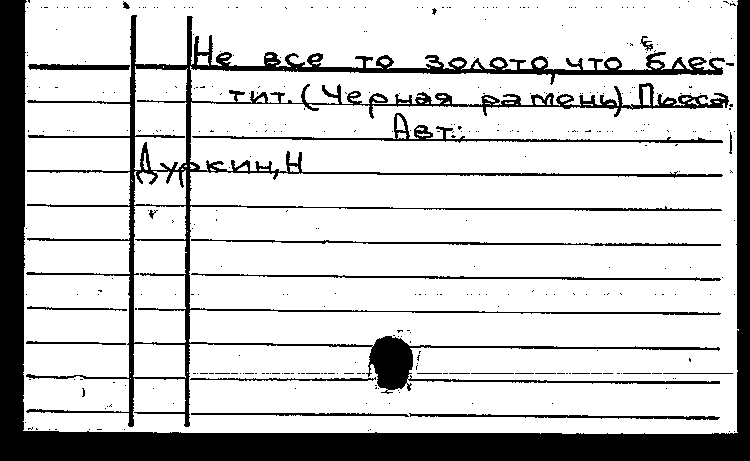 Не все то золото, что блес-
тит. (Черная рамень) Пьеса.
Авт.:
Дуркин, Н